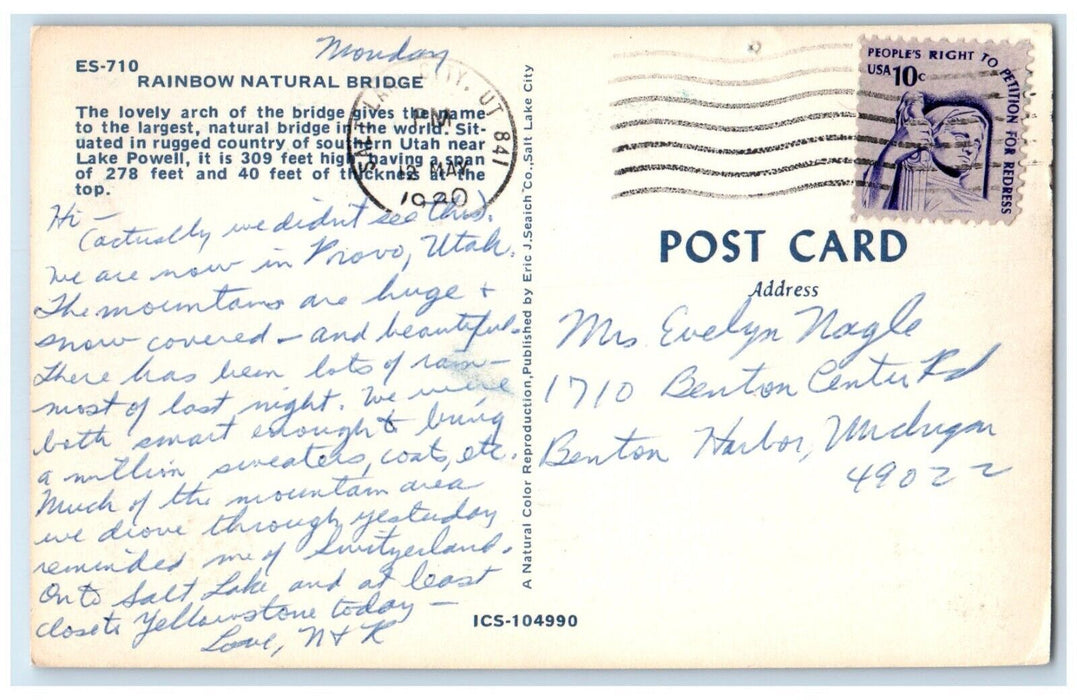 Monday
ES-710
RAINBOW NATURAL BRIDGE
The lovely arch of the bridge gives the name
to the largest, natural bridge in the world. Sit-
uated in rugged country of southern Utah near
Lake Powell, it is 309 feet high having a span
of 278 feet and 40 feet of thickness at the
top.
SALT LAKE CITY, UT 841
PM
12 MAY
1980
Hi -
(actually we didn't see this).
We are now in Provo, Utah.
The mountains are huge +
snow covered - and beautiful.
There has been lots of rain -
most of last night. We were
both smart enough to bring
a million sweaters, coats, etc.
Much of the mountain area
we drove through yesterday
reminded me of Switzerland.
Onto Salt Lake and at least
close to Yellowstone today -
Love, N + K
A Natural Color Reproduction, Published by Eric J. Seaich Co., Salt Lake City
ICS-104990
PEOPLE'S RIGHT TO PETITION FOR REDRESS
USA 10c
POST CARD
Address
Mrs Evelyn Nagle
1710 Benton Center Rd
Benton Harbor, Michigan
49022